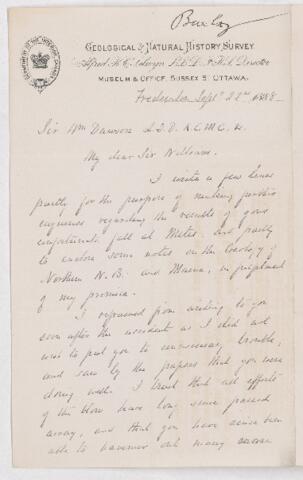 Bailey
GEOLOGICAL & NATURAL HISTORY SURVEY
Alfred R. C. Selwyn LL.D. F.R.S. Director
MUSEUM & OFFICE, SUSSEX ST OTTAWA.
Fredericton Sept 22nd 1888
Sir Wm Dawson LL.D. K.C.M.G. &c
My dear Sir William.
I write a few lines
partly for the purpose of making further
enquiries regarding the results of your
unfortunate fall at Metis, and partly
to enclose some notes on the Geology of
Northern N.B. and Maine, in fulfilment
of my promise.
I refrained from writing to you
soon after the accident as I did not
wish to put you to unnecessary trouble,
and saw by the papers that you were
doing well. I trust that all effects
of the blow have long since passed
away, and that you have since been
able to hammer out many more